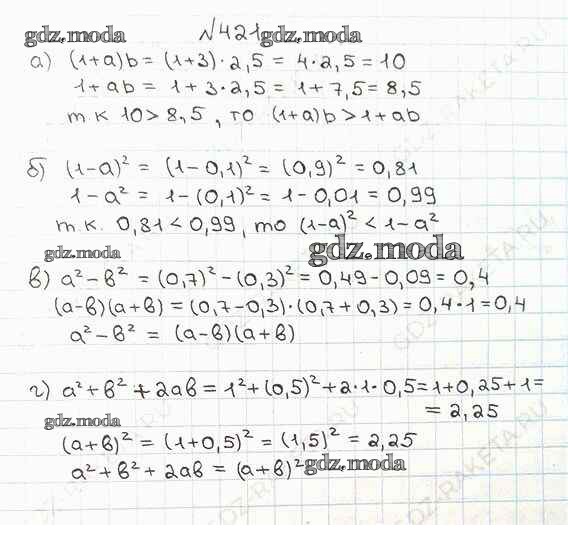 gdz.moda №421 gdz.moda
а) (1+a)b = (1+3)·2,5 = 4·2,5 = 10
1+ab = 1+3·2,5 = 1+7,5 = 8,5
т к 10 > 8,5, то (1+a)b > 1+ab
б) (1-a)² = (1-0,1)² = (0,9)² = 0,81
1-a² = 1-(0,1)² = 1-0,01 = 0,99
т.к. 0,81 < 0,99, то (1-a)² < 1-a²
gdz.moda gdz.moda
в) a²-в² = (0,7)²-(0,3)² = 0,49-0,09 = 0,4
(a-в)(a+в) = (0,7-0,3)·(0,7+0,3) = 0,4·1 = 0,4
a²-в² = (a-в)(a+в)
г) a²+в²+2aв = 1²+(0,5)²+2·1·0,5 = 1+0,25+1 =
= 2,25
gdz.moda
(a+в)² = (1+0,5)² = (1,5)² = 2,25
a²+в²+2aв = (a+в)² gdz.moda
GDZ-RAKETA.RU